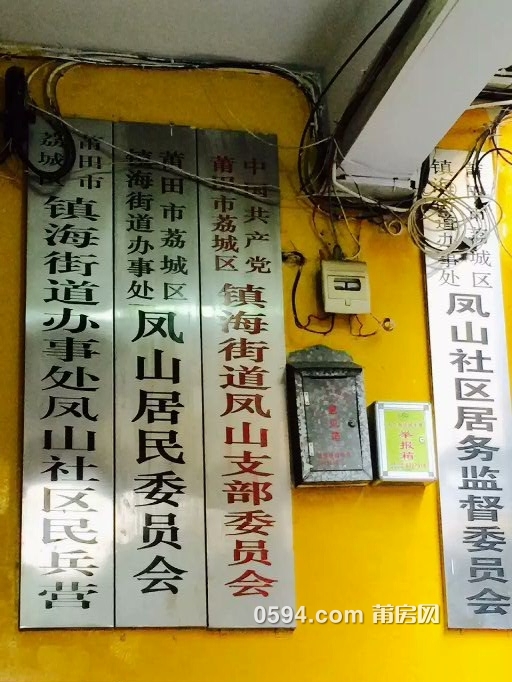 中国共产党
莆田市荔城区
镇海街道凤山支部委员会
莆田市荔城区
镇海街道办事处
凤山居民委员会
莆田市
荔城区
镇海街道办事处凤山社区民兵营
莆田市荔城区
镇海街道办事处
凤山社区居务监督委员会
意见箱
举报箱
0594.com 莆房网